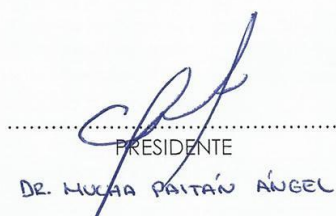 PRESIDENTE
DR. MUCHA PAITÁN ÁNGEL